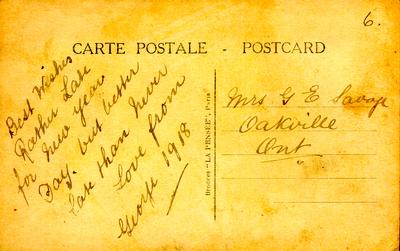 6.
CARTE POSTALE - POSTCARD
Best Wishes
Rather Late
for New Year
Day. but better
late than never
Love from
George 1918
Brodées "LA PENSÉE", Paris
Mrs G E Savage
Oakville
Ont